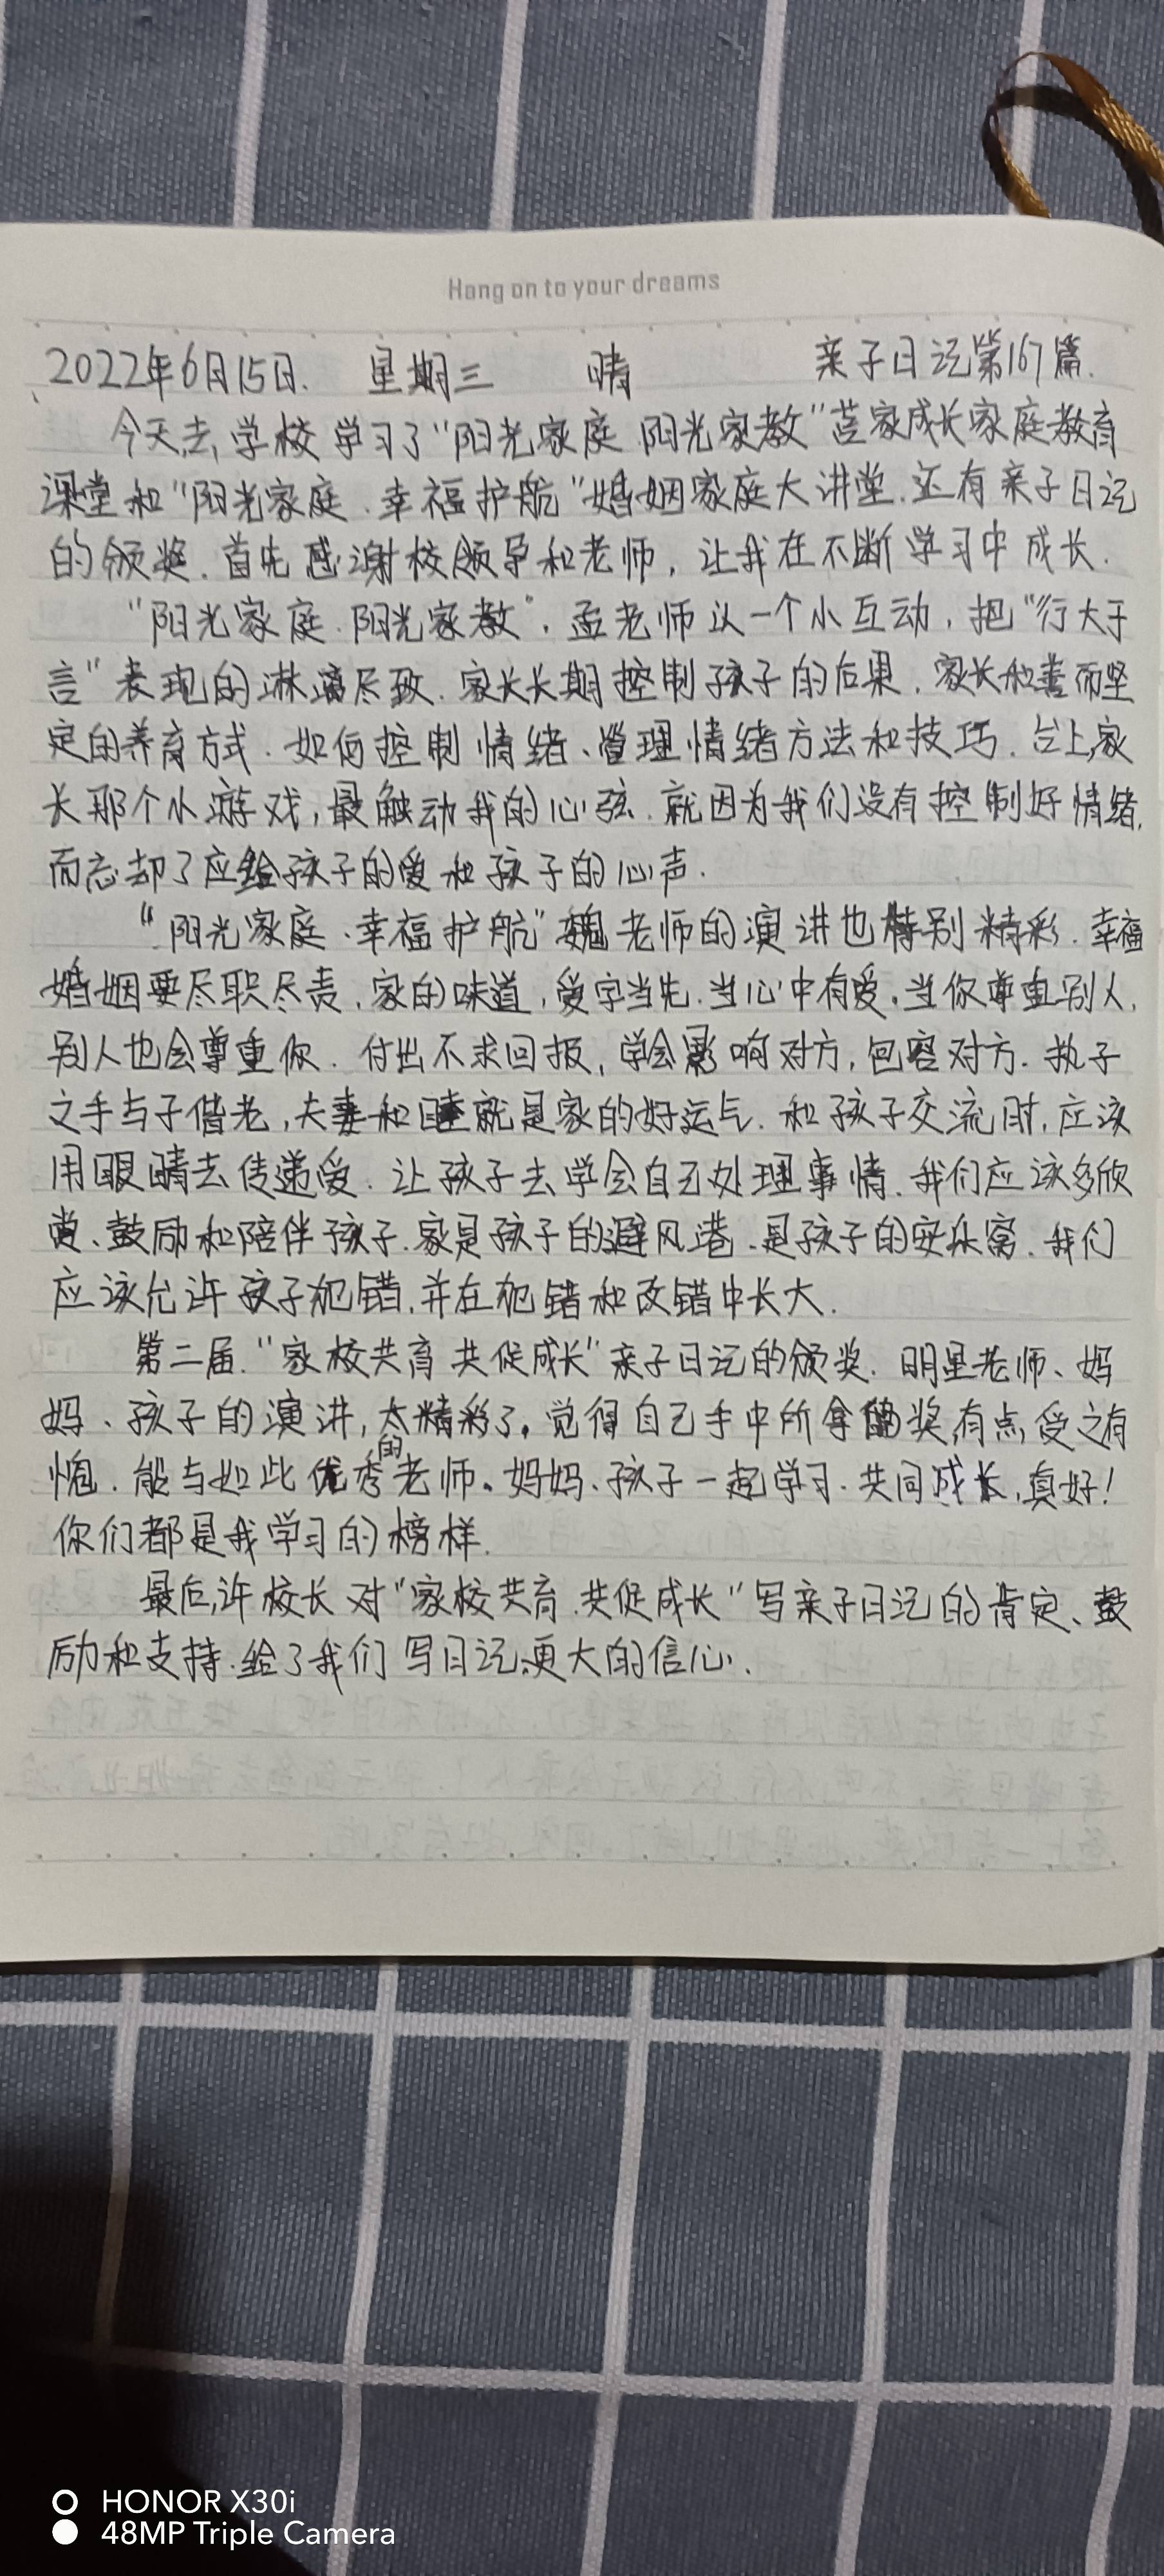 Hang on to your dreams
2022年6月15日. 星期三 晴 亲子日记第167篇.
今天去,学校学习了"阳光家庭 阳光家教"莒家成长家庭教育
课堂和"阳光家庭.幸福护航"婚姻家庭大讲堂.还有亲子日记
的颁奖.首先感谢校领导和老师,让我在不断学习中成长.
"阳光家庭.阳光家教".孟老师以一个小互动,把"行大于
言"表现的淋漓尽致.家长长期控制孩子的后果,家长和善而坚
定的养育方式.如何控制情绪、管理情绪方法和技巧.台上,家
长那个小游戏,最触动我的心弦.就因为我们没有控制好情绪,
而忘却了应给孩子的爱和孩子的心声.
"阳光家庭、幸福护航"魏老师的演讲也特别精彩.幸福
婚姻要尽职尽责,家的味道,爱字当先.当心中有爱.当你尊重别人,
别人也会尊重你.付出不求回报,学会影响对方,包容对方.执子
之手与子偕老,夫妻和睦就是家的好运气.和孩子交流时,应该
用眼睛去传递爱.让孩子去学会自己处理事情.我们应该多欣
赏、鼓励和陪伴孩子.家是孩子的避风港.是孩子的安乐窝.我们
应该允许孩子犯错,并在犯错和改错中长大.
第二届."家校共育 共促成长"亲子日记的颁奖.明星老师、妈
妈、孩子的演讲,太精彩了。觉得自己手中所拿的奖,有点,受之有
愧.能与如此优秀的老师。妈妈、孩子一起学习.共同成长,真好!
你们都是我学习的榜样.
最后,许校长对"家校共育.共促成长"写亲子日记的肯定、鼓
励和支持.给了我们写日记,更大的信心.
HONOR X30i
48MP Triple Camera